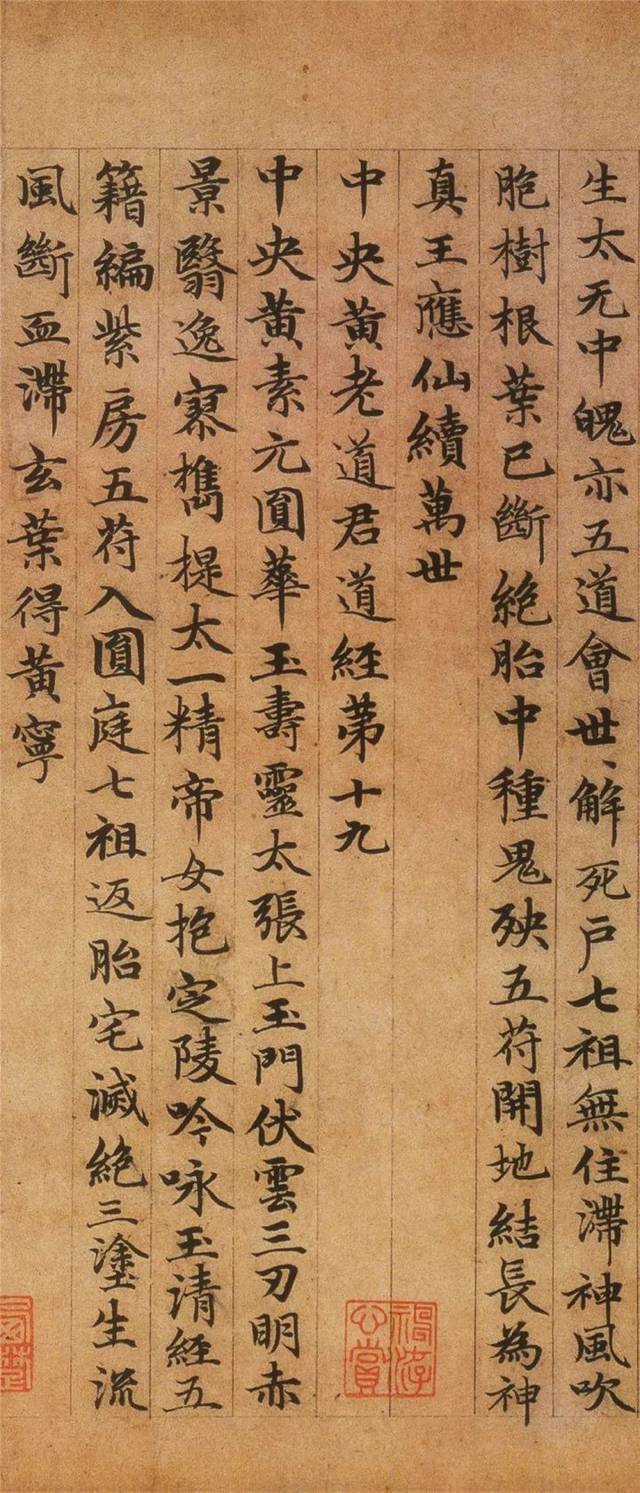 生太无中魄亦五道會世〻解死戶七祖無住滯神風吹
胞樹根葉已斷絕胎中種鬼殃五苻開地結長為神
真王應仙續萬世
中央黃老道君道經苐十九
中央黃素元圓華玉壽靈太張上玉門伏雲三刃明赤
景翳逸寮擕提太一精帝女抱定陵吟咏玉清經五
籍編紫房五苻入圓庭七祖返胎宅滅絕三塗生流
風斷血滯玄葉得黃寧